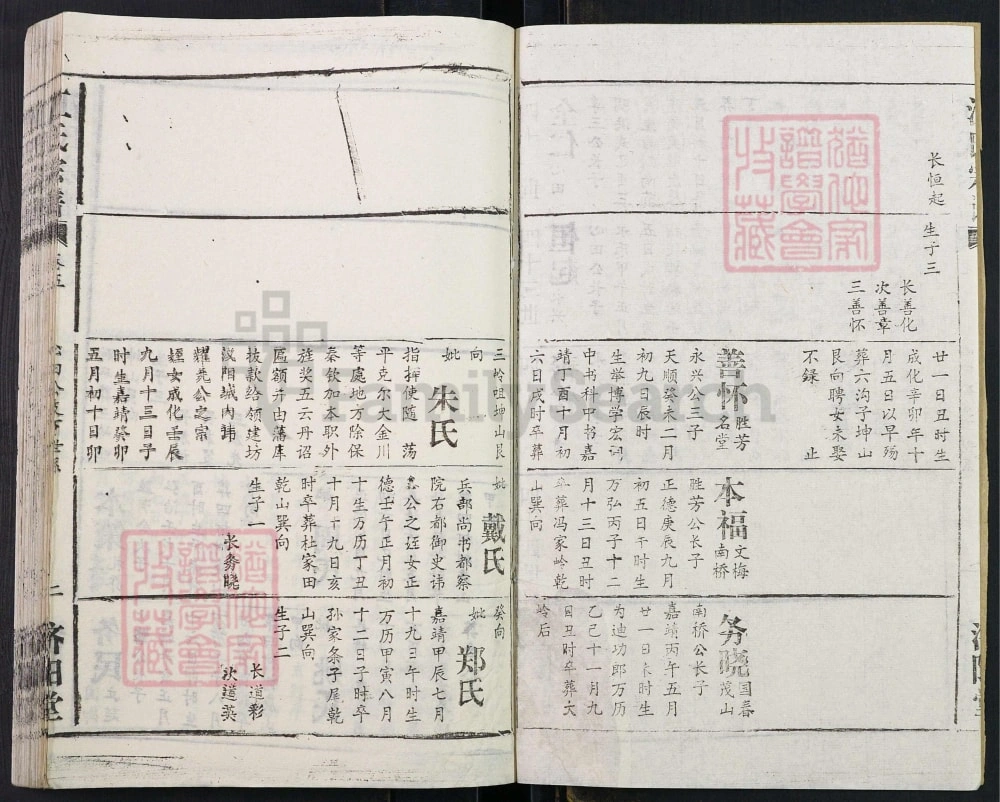 长恒起
生子三
长善化
次善章
三善怀
廿一日丑时生
成化辛卯年十
月五日以早殇
葬六沟子坤山
艮向聘女未娶
不录 止
善怀 胜芳 名堂
永兴公三子
天顺癸未二月
初九日辰时
生举博学宏词
中书科中书嘉
靖丁酉十月初
六日戌时卒葬
本福 文梅 南桥
胜芳公长子
正德庚辰九月
初五日午时生
万弘丙子十二
月十三日丑时
卒葬冯家岭乾
山巽向
务晓 国春 茂山
南桥公长子
嘉靖丙午五月
廿一日未时生
为迪功郎万历
乙巳十一月九
日丑时卒葬大
岭后
三岭咀坤山艮
向
妣 朱氏
指挥使随 荡
平克尔大金川
等處地方除保
秦钦加本职外
旌奖五云丹诏
匾额并由藩库
拔款给领建坊
汉阳城内讳
耀尧公之宗
姪女成化壬辰
九月十三日子
时生嘉靖癸卯
五月初十日卯
妣 戴氏
兵部尚书都察
院右都御史讳
公之姪女正
德壬午正月初
十生万历丁丑
十月十九日亥
时卒葬杜家田
乾山巽向
生子一
长务晓
癸向
妣 郑氏
嘉靖甲辰七月
十九日午时生
万历甲寅八月
十二日子时卒
孙家条子尾乾
山巽向
生子二
长道彩
次道英
氏宗譜
卷五
二
济阳堂
FamilySearch